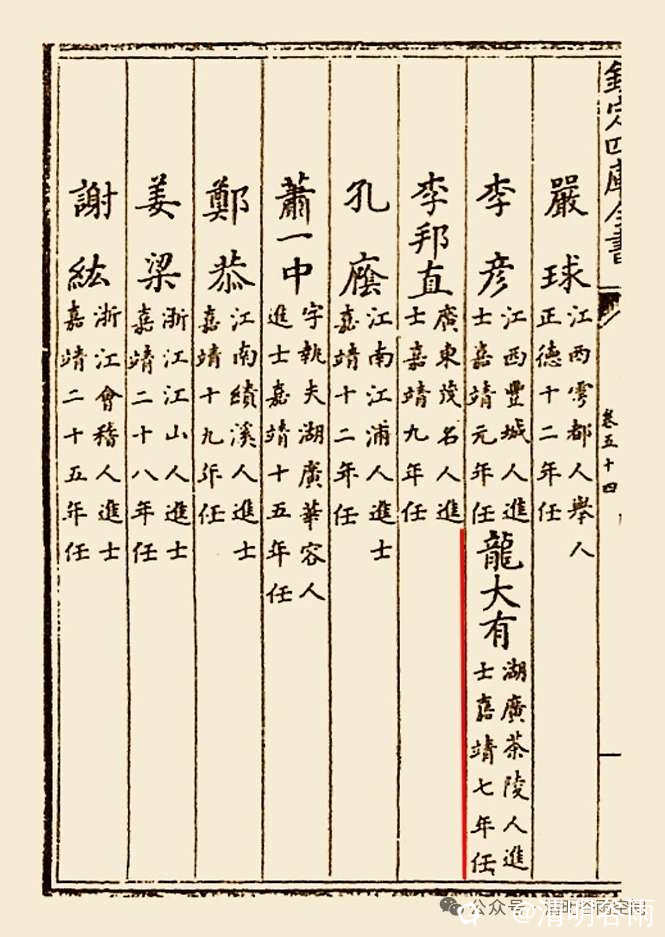 欽定四庫全書
卷五十四
嚴球 江西雩都人舉人
正德十二年任
李彥 江西豐城人進
士嘉靖元年任
龍大有 湖廣茶陵人進
士嘉靖七年任
李邦直 廣東茂名人進
士嘉靖九年任
孔廕 江南江浦人進士
嘉靖十二年任
蕭一中 字執夫湖廣華容人
進士嘉靖十五年任
鄭恭 江南績溪人進士
嘉靖十九年任
姜梁 浙江江山人進士
嘉靖二十八年任
謝紘 浙江會稽人進士
嘉靖二十五年任
公众号
@清明谷雨